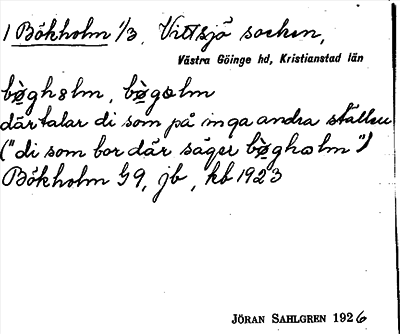 1 Bökholm 1/3. Vittsjö socken,
Västra Göinge hd, Kristianstad län
bø̀ghɘlm, bø̀gɘlm
där talar di som på inga andra ställen
("di som bor där säger bø̀gholm")
Bökholm 59, jb, kb 1923
JÖRAN SAHLGREN 1926